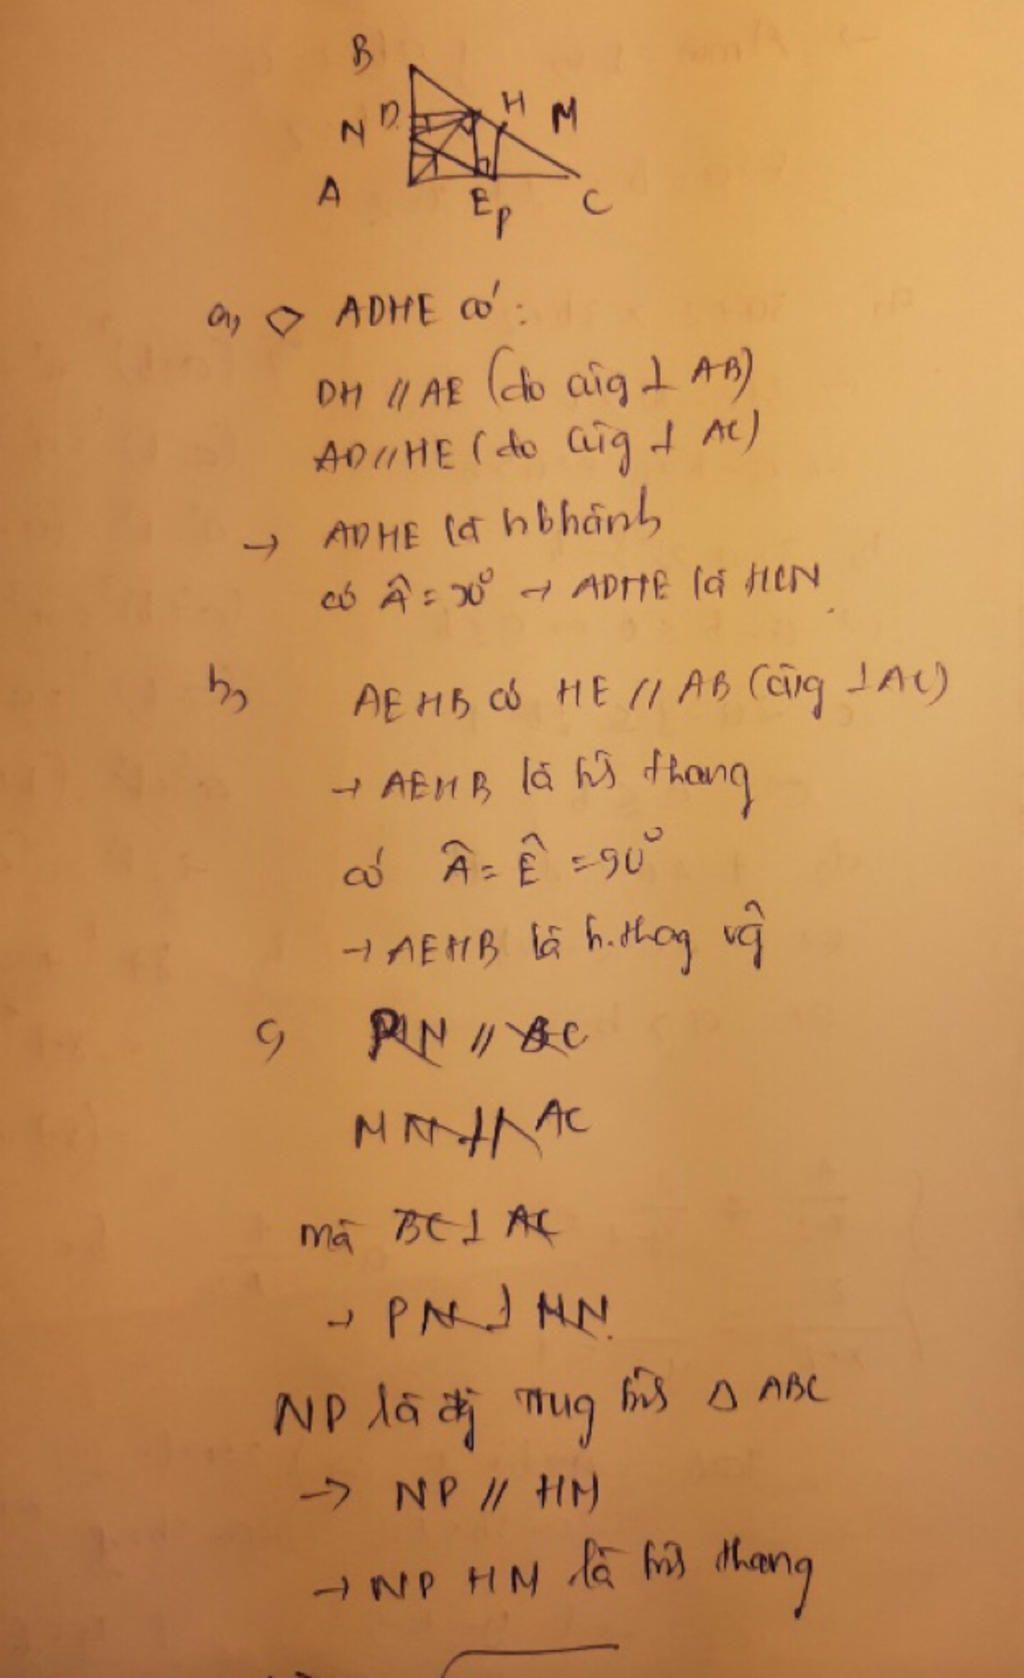 B
D H M
N
A E C
P
a, ◇ ADHE có:
DH // AE (do cùg ⊥ AB)
AD // HE (do cùg ⊥ AC)
→ ADHE là hbhành
có Â = 90° → ADHE là HCN.
b, AEHB có HE // AB (cùg ⊥ AC)
→ AEHB là hỳ thang
có Â = Ê = 90°
→ AEHB là h.thag vg
c, PN // BC
MN // AC
mà BC ⊥ AC
→ PN ⊥ MN
NP là đg trug bìh Δ ABC
→ NP // HM
→ NP HM là hìh thang